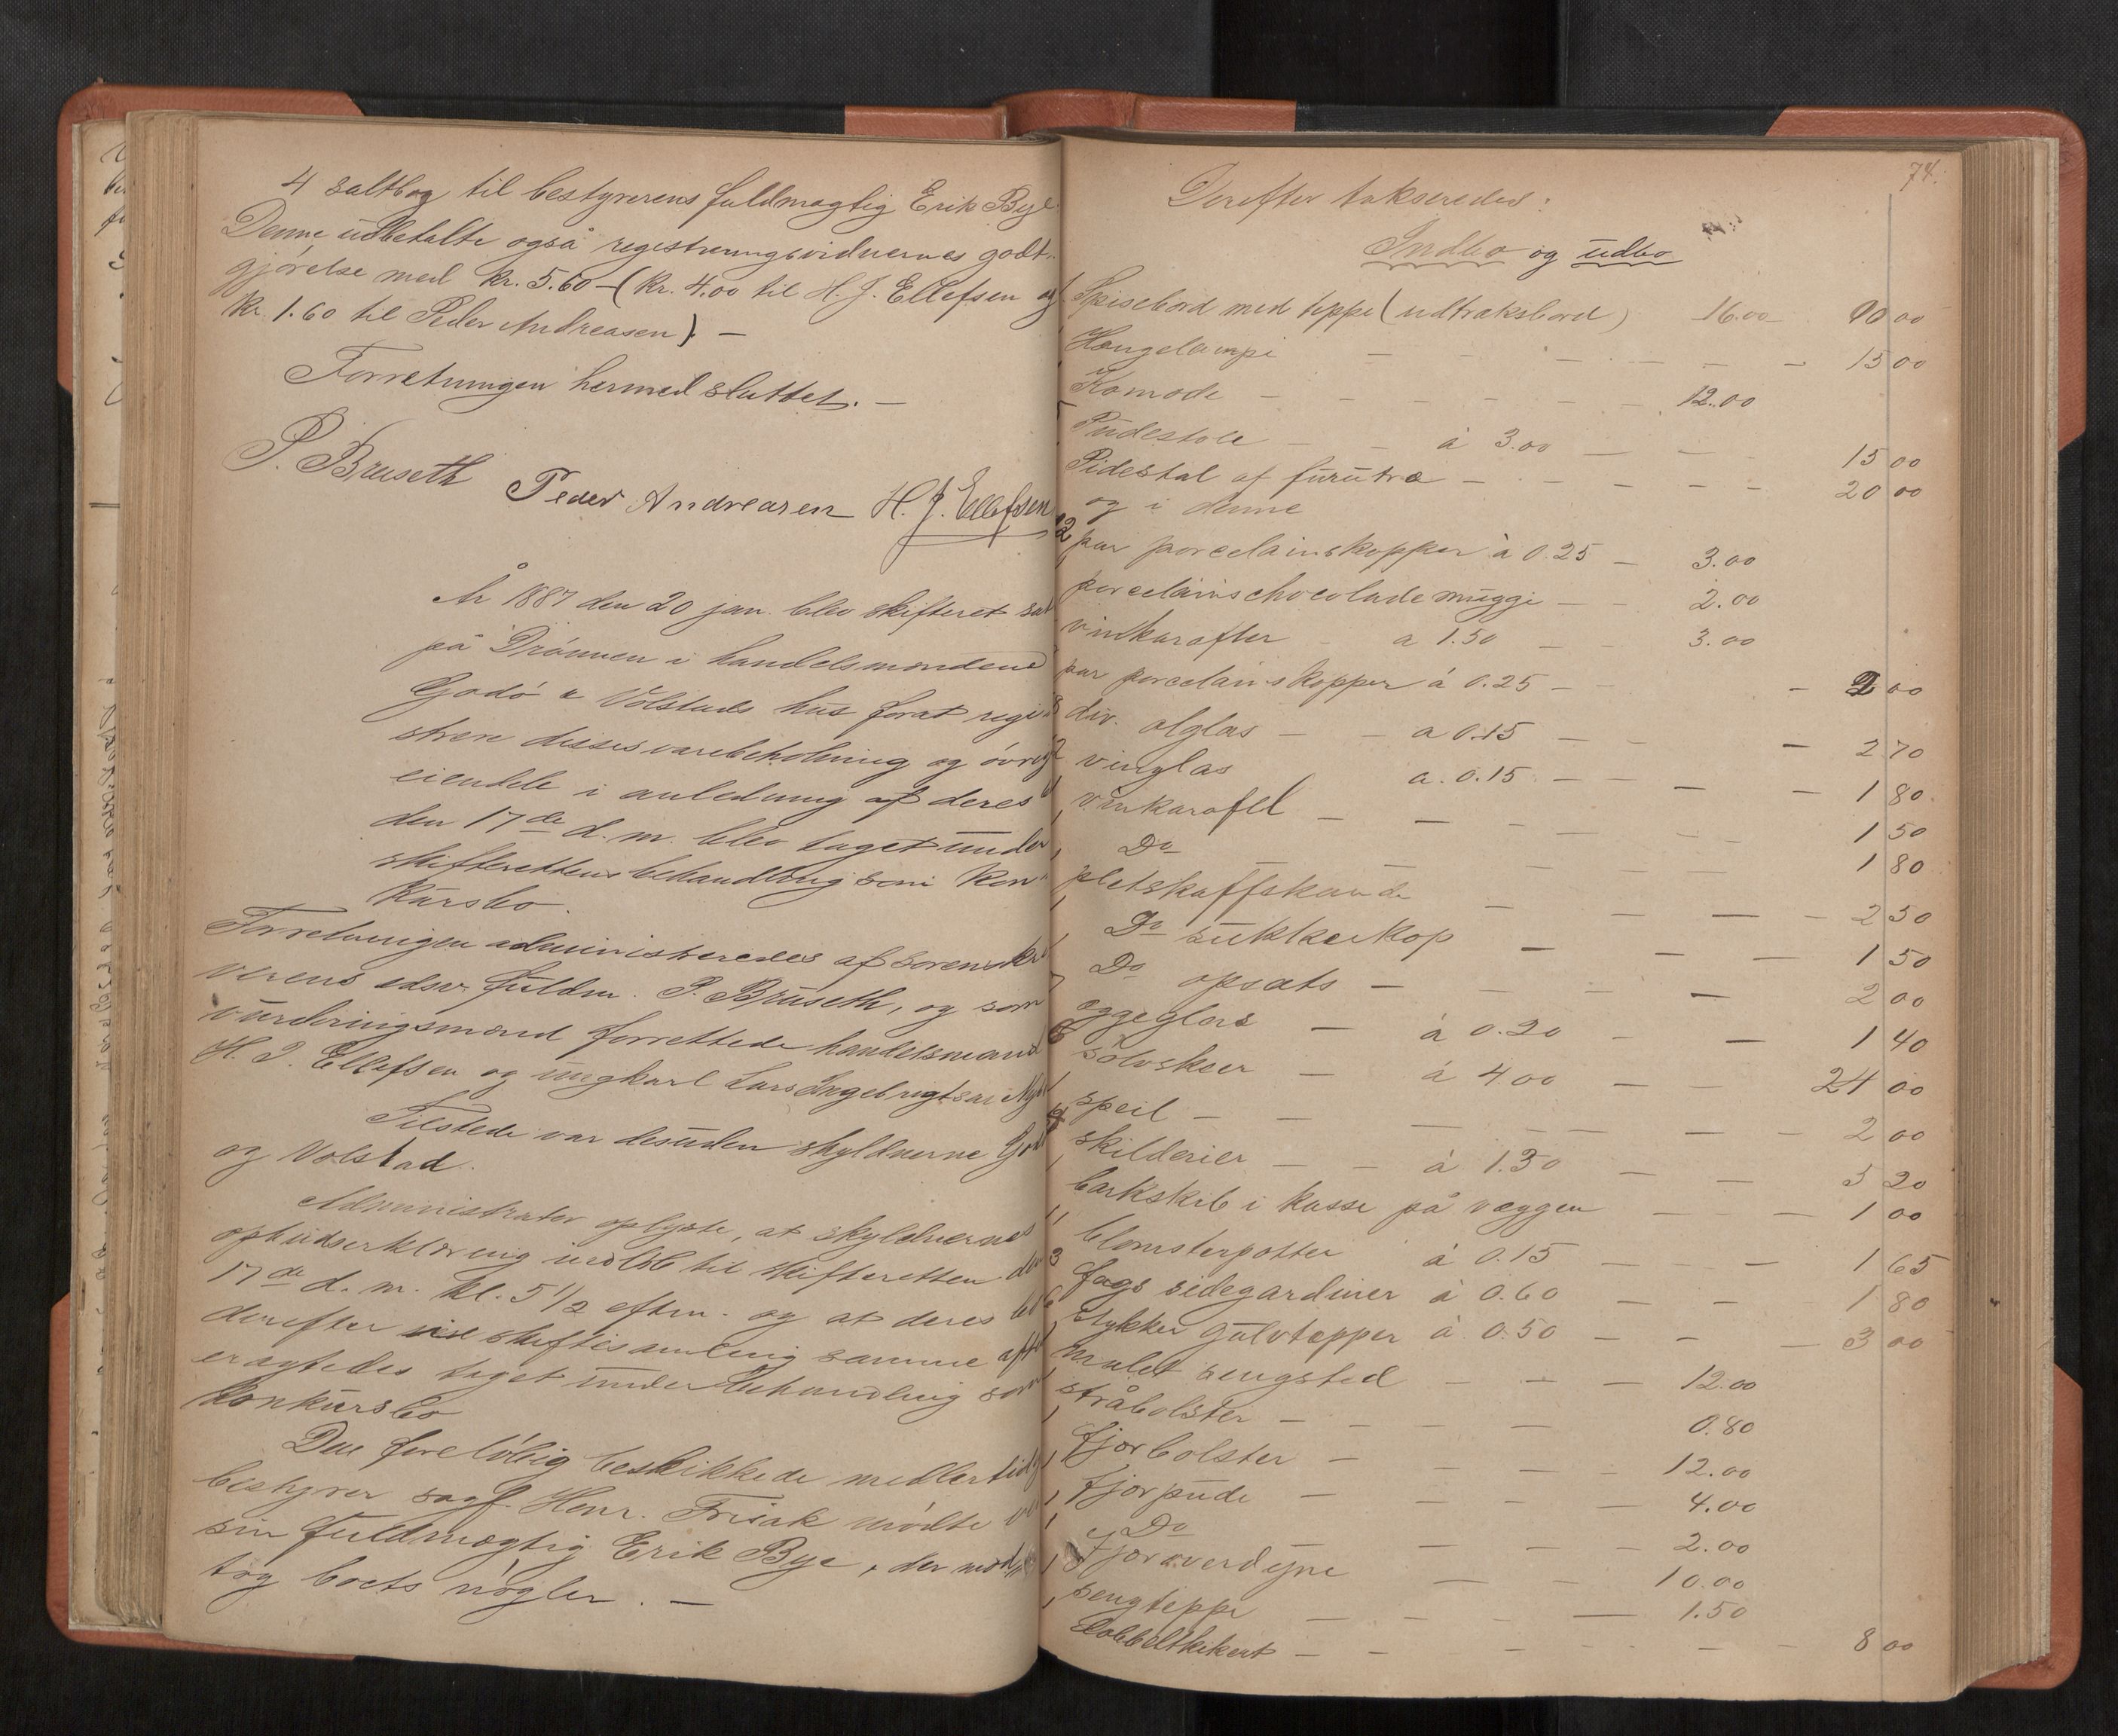 4 saltbog til bestyrerens fuldmægtig Erik Bye.
Denne udbetalte også registreringsvidnernes godt-
gjørelse med kr. 5.60 – (kr. 4.00 til H. J. Ellefsen og
kr. 1.60 til Peder Andreasen). –
Forretningen hermed sluttet. –
P. Bruseth Peder Andreasen H. J. Ellefsen
År 1887 den 20 jan. blev skifteret sat
på Drönnen i handelsmændene
Godö & Volstads hus forat regi
strere disses varebeholdning og övrige
eiendele i anledning af deres
den 17de d. m. blev taget under
skifterettens behandling som kon-
kursbo.
Forretningen administreredes af sorenskri
verens edsv. fuldm. P. Bruseth, og som
vurderingsmænd forrettede handelsmand
H. J. Ellefsen og ungkarl Lars Ingebrigtsen
Tilstede var desuden skyldnerne God
og Volstad.
Administrator oplyste, at skyldnernes
opbudserklæring indlöb til skifteretten den
17de d. m. kl. 5 1/2 efterm. og at deres bo
derefter skiftesamling samme aft
eragtedes taget under behandling som
konkursbo
Den foreløbig beskikkede midlertidig
bestyrer sagf. Henr. Frisak mödte ved
sin fuldmægtig Erik Bye, der mod
tog boets nögler. –
74.
Derefter takseredes:
Indbo og udbo
Spisebord med teppe (udtræksbord) 16.00 10 00
Hængelampe – – – – – 15 00
Komode – – – – – 12.00
Pudestole – – à 3.00 – – 15 00
Pidestal af furutræ – – – – 20 00
og i denne
12 par porcelainskopper à 0.25 – 3.00
porcelainschocolademugge – – 2.00
vinkarafler – a 1.50 – – 3.00
par porcelainskopper à 0.25 – – 2 00
div. ölglas – – a 0.15 – – – 2 70
vinglas a. 0.15 – – – – 1 80
vinkaraffel – – – – – 1 50
Do – – – – 1 80
pletskaffekande – – – – 2 50
Do sukkerkop – – – – 1 50
Do opsats – – – – 2 00
æggeglas – à 0.20 – – 1 40
6 sölvskeer – à 4 00 – – 24 00
speil – – – – – – 2 00
4 skilderier – – à 1.30 – – 5 20
barkskib i kasse på væggen – – – 1 00
11 blomsterpotter à 0.15 – – – 1 65
3 fags sidegardiner à 0.60 – – – 1 80
6 stykker gulvtæpper à 0.50 – – – 3 00
malet sengsted – – – 12.00
stråbolster – – – – 0.80
fjørbolster – – – – 12.00
fjørpude – – – – 4.00
Do – – – 2.00
Fjøroverdyne – – 10.00
sengteppe – – – – 1.50
dobbeltkikkert – – – – – – 8 00